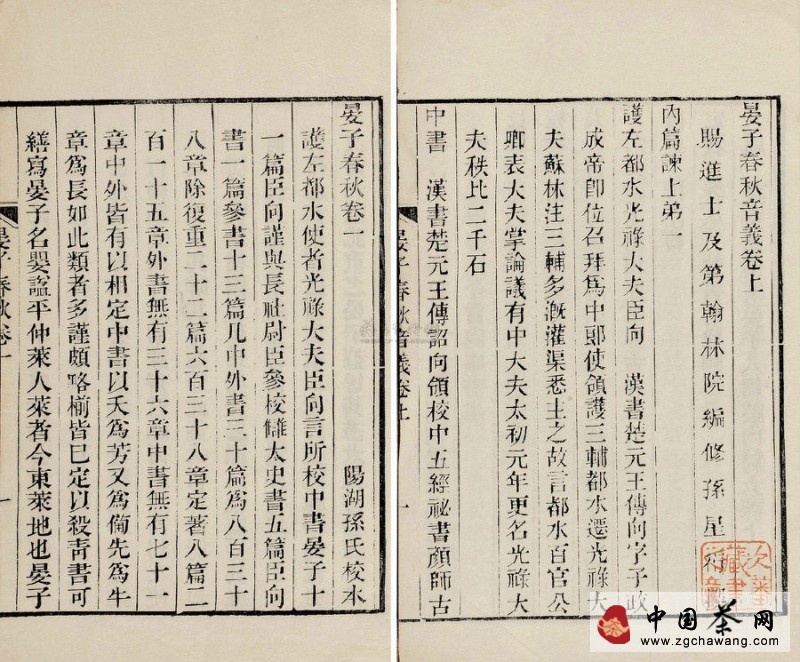 晏子春秋音義卷上
賜進士及第翰林院編修孫星衍
內篇諫上第一
護左都水光祿大夫臣向 漢書楚元王傳向字子政
成帝卽位召拜爲中郎使領護三輔都水遷光祿大
夫蘇林注三輔多漑灌渠悉主之故言都水百官公
卿表大夫掌論議有中大夫太初元年更名光祿大
夫秩比二千石
中書 漢書楚元王傳詔向領校中五經祕書顏師古
晏子春秋音義卷上 一
晏子春秋卷一 陽湖孫氏校本
護左都水使者光祿大夫臣向言所校中書晏子十
一篇臣向謹與長社尉臣參校讎太史書五篇臣向
書一篇參書十三篇凡中外書三十篇爲八百三十
八章除復重二十二篇六百三十八章定著八篇二
百一十五章外書無有三十六章中書無有七十一
章中外皆有以相定中書以夭爲芳又爲備先爲牛
章爲長如此類者多謹頗略椾皆已定以殺靑書可
繕寫晏子名嬰諡平仲萊人萊者今東萊地也晏子
晏子春秋卷一 一
藏書
中国茶网
www.zgchawang.com